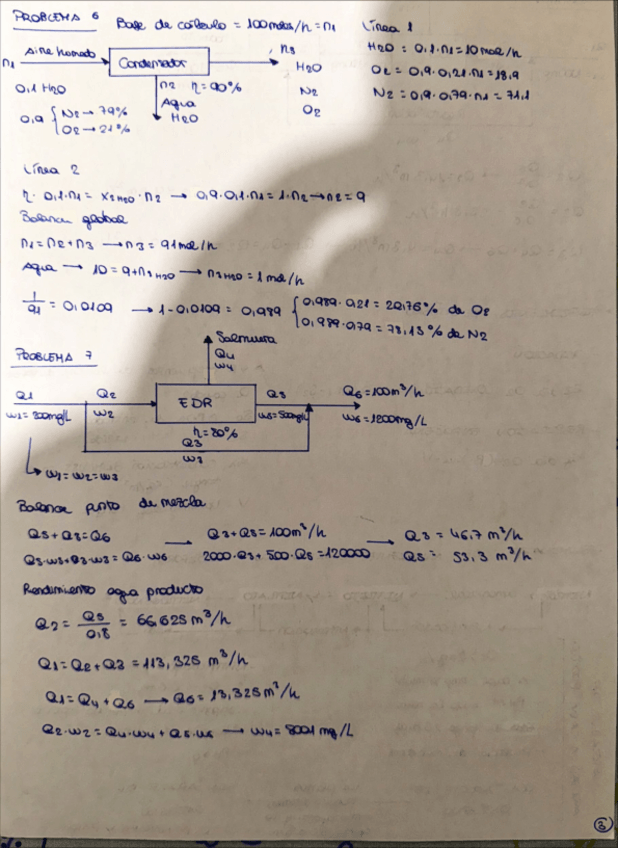 PROBLEMA 6 Base de cálculo = 100 moles/h = n1
Línea 1
H2O = 0,1·n1 = 10 mol/h
O2 = 0,9·0,21·n1 = 18,9
N2 = 0,9·0,79·n1 = 71,1
aire húmedo
n1
0,1 H2O
0,9 { N2 → 79%
O2 → 21%
Condensador
n2 η = 90%
Agua
H2O
n3
H2O
N2
O2
Línea 2
η · 0,1·n1 = x2H2O · n2 → 0,9·0,1·n1 = 1·n2 → n2 = 9
Balance global
n1 = n2 + n3 → n3 = 91 mol/h
Agua → 10 = 9 + n3H2O → n3H2O = 1 mol/h
1/91 = 0,0109 → 1 - 0,0109 = 0,989 { 0,989·0,21 = 20,76% de O2
0,989·0,79 = 78,13% de N2
PROBLEMA 7
Salmuera
Q4
w4
Q1 Q2 EDR Q5 Q6 = 100 m³/h
w1 = 2000mg/L w2 w5 = 500mg/L w6 = 1200mg/L
η = 80%
Q3
w3
w1 = w2 = w3
Balance punto de mezcla
Q5 + Q3 = Q6 → Q3 + Q5 = 100 m³/h → Q3 = 46,7 m³/h
Q5·w5 + Q3·w3 = Q6·w6 2000·Q3 + 500·Q5 = 120000 Q5 = 53,3 m³/h
Rendimiento agua producto
Q2 = Q5/0,8 = 66,625 m³/h
Q1 = Q2 + Q3 = 113,325 m³/h
Q1 = Q4 + Q6 → Q6 = 13,325 m³/h
Q2·w2 = Q4·w4 + Q5·w5 → w4 = 8001 mg/L
3